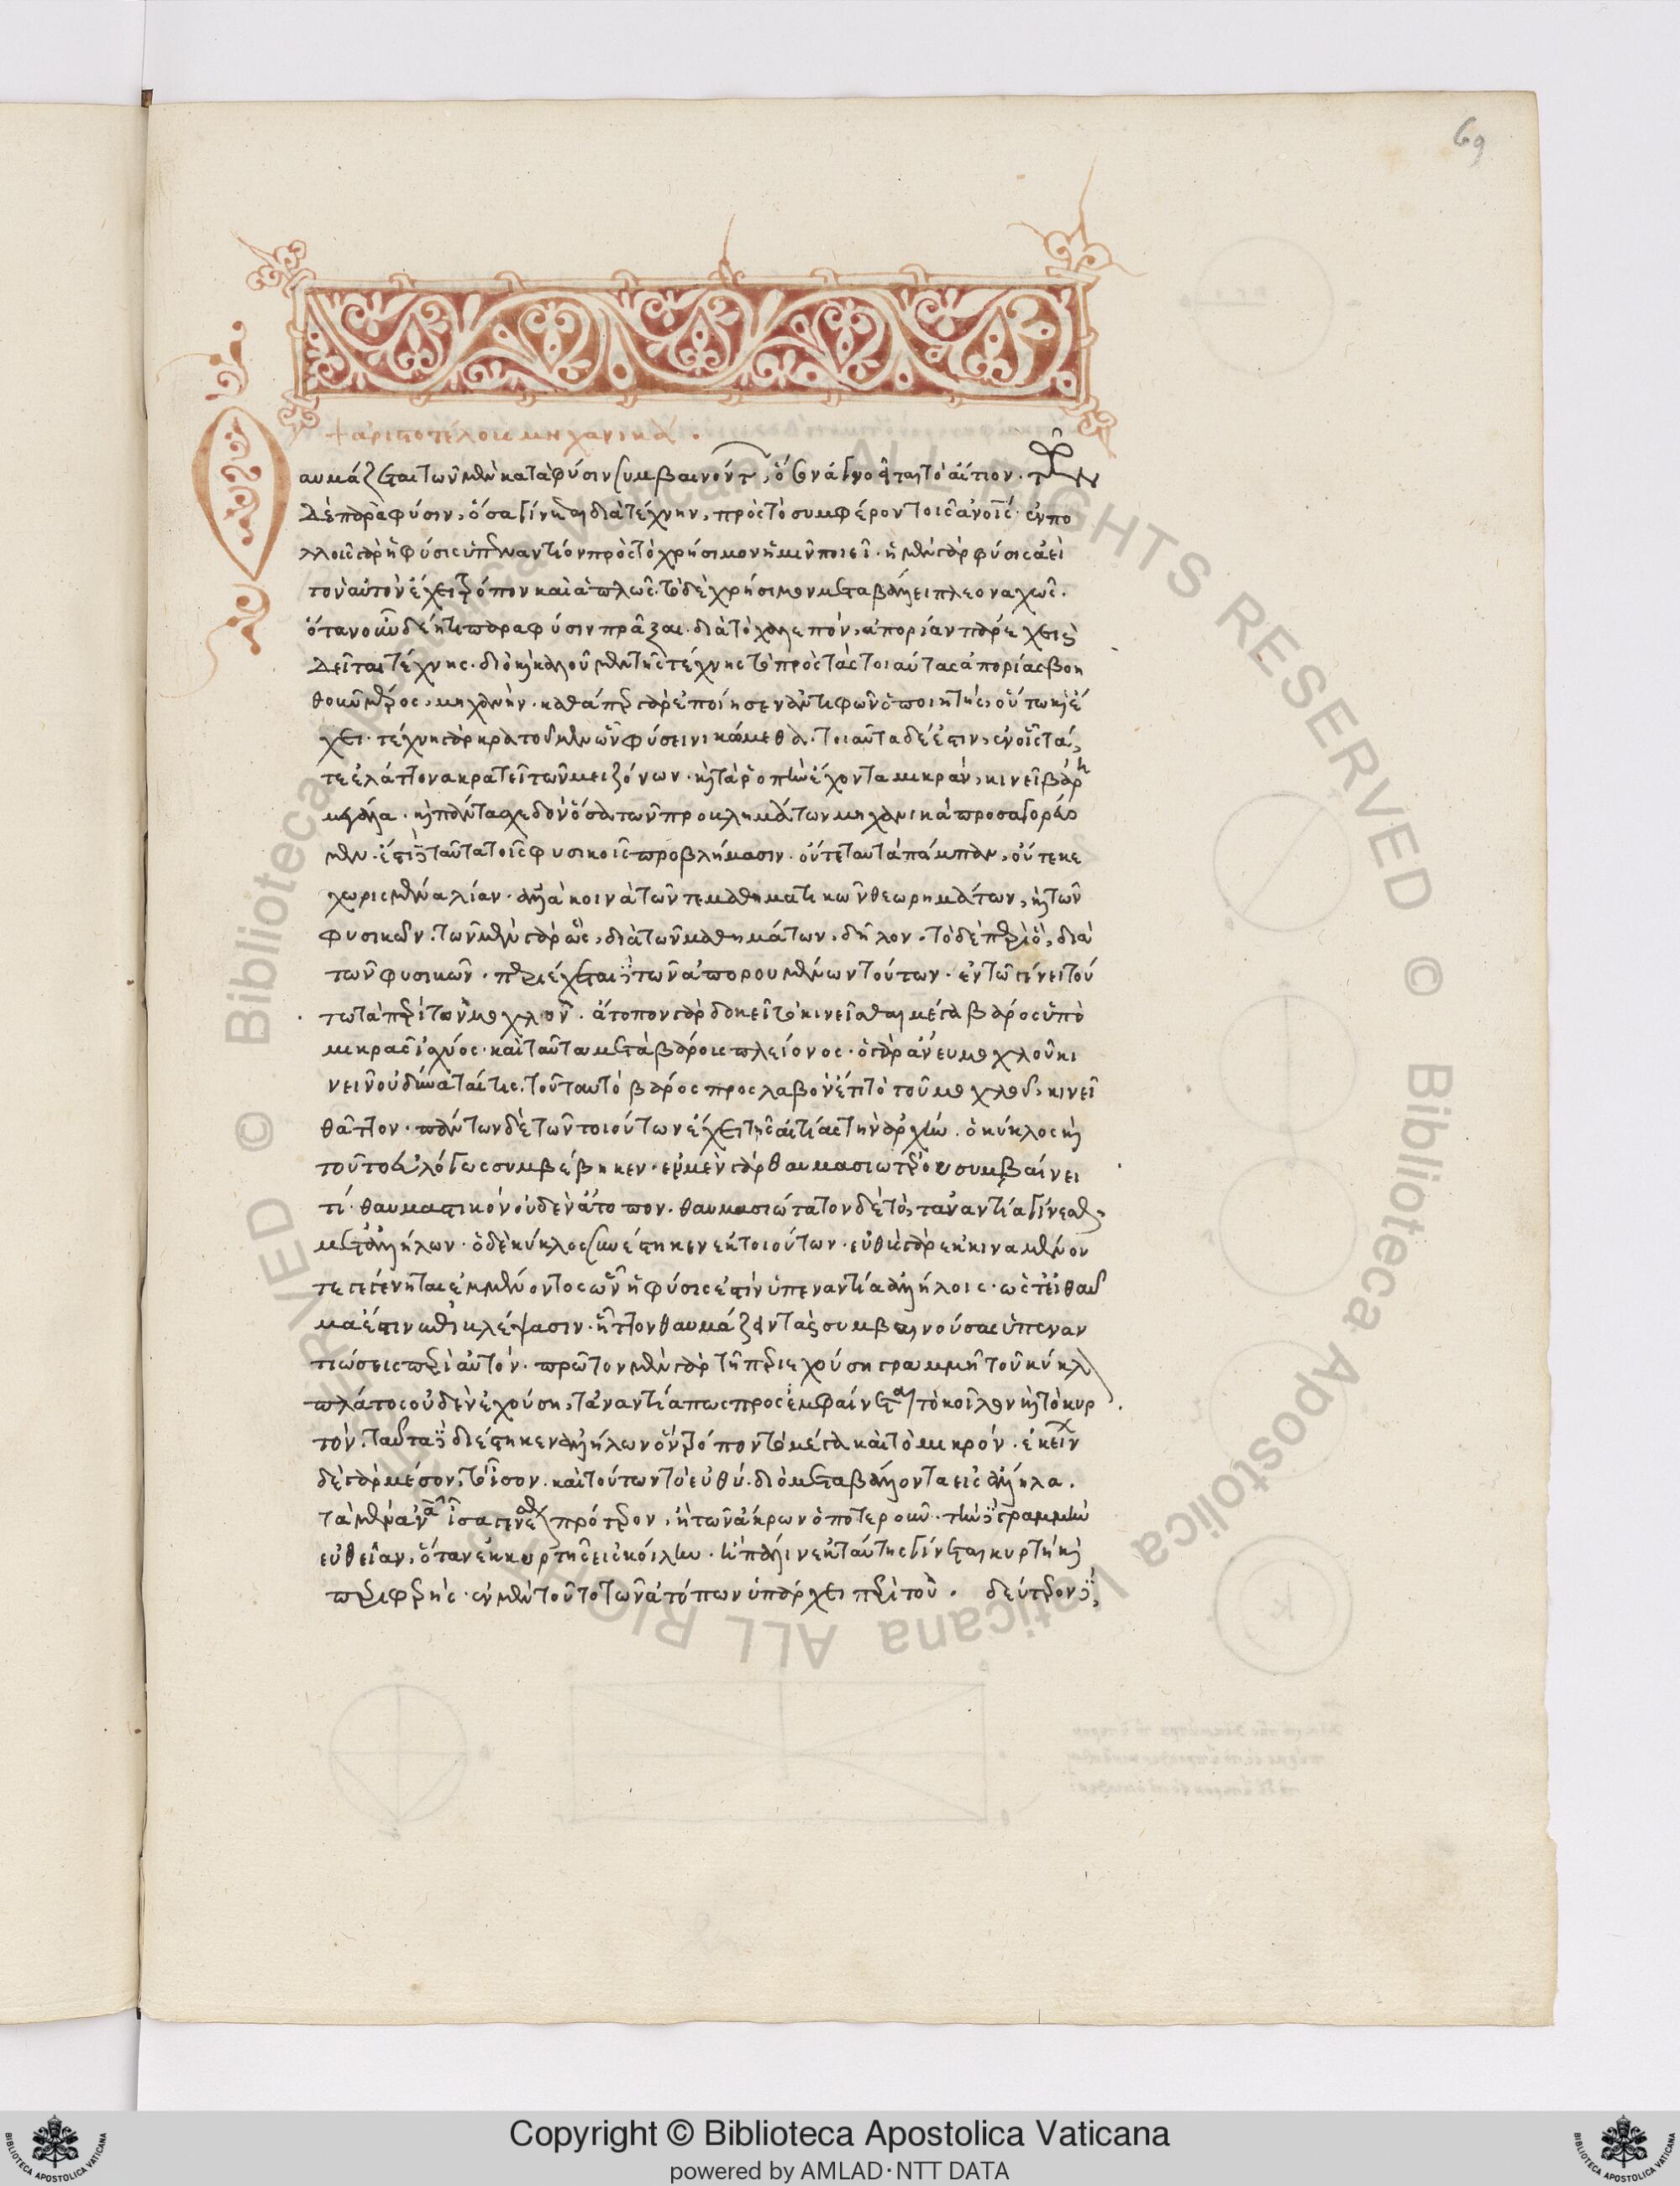 69
+ ἀριστοτέλους μηχανικά .
Θαυμάζεται τῶν μὲν κατὰ φύσιν συμβαινόντων, ὅσων ἀγνοεῖται τὸ αἴτιον . τῶν
δὲ παρὰ φύσιν, ὅσα γίνεται διὰ τέχνην, πρὸς τὸ συμφέρον τοῖς ἀνοις . ἐν πο
λλοῖς γὰρ ἡ φύσις ὑπεναντίον πρὸς τὸ χρήσιμον ἡμῖν ποιεῖ . ἡ μὲν γὰρ φύσις ἀεὶ
τὸν αὐτὸν ἔχει τρόπον καὶ ἁπλῶς . τὸ δὲ χρήσιμον μεταβάλλει πλεοναχῶς .
ὅταν οὖν δέῃ τι παρὰ φύσιν πρᾶξαι . διὰ τὸ χαλεπὸν, ἀπορίαν παρέχει καὶ
δεῖται τέχνης . διὸ καὶ καλοῦμεν τῆς τέχνης τὸ πρὸς τὰς τοιαύτας ἀπορίας βοη
θοῦν μέρος, μηχανήν . καθάπερ γὰρ ἐποίησεν ἀντιφῶν ὁ ποιητής, οὕτω καὶ ἔ
χει . τέχνῃ γὰρ κρατοῦμεν ὧν φύσει νικώμεθα . τοιαῦτα δέ ἐστιν, ἐν οἷς τά,
τε ἐλάττονα κρατεῖ τῶν μειζόνων . καὶ τὰ ῥοπὴν ἔχοντα μικρὰν, κινεῖ βάρη
μεγάλα . καὶ πάντα σχεδὸν ὅσα τῶν προβλημάτων μηχανικὰ προσαγορεύο
μεν . ἔστι δὲ ταῦτα τοῖς φυσικοῖς προβλήμασιν . οὔτε ταυτὰ πάμπαν, οὔτε κε
χωρισμένα λίαν . ἀλλὰ κοινὰ τῶν τε μαθηματικῶν θεωρημάτων, καὶ τῶν
φυσικῶν . τὸ μὲν γὰρ ὡς, διὰ τῶν μαθημάτων, δῆλον . τὸ δὲ περὶ ὃ, διὰ
τῶν φυσικῶν . περιέχεται δὲ τῶν ἀπορουμένων τούτων . ἐν τῷ γένει τού
τω τὰ περὶ τὸν μοχλὸν . ἄτοπον γὰρ δοκεῖ τὸ κινεῖσθαι μέγα βάρος ὑπὸ
μικρᾶς ἰσχύος . καὶ ταῦτα μετὰ βάρους πλείονος . ὃ γὰρ ἄνευ μοχλοῦ κι
νεῖν οὐ δύναταί τις . τοῦτ αυτὸ βάρος προσλαβὸν ἔτι τὸ τοῦ μοχλοῦ, κινεῖ
θᾶττον . πάντων δὲ τῶν τοιούτων ἔχει τῆς αἰτίας τὴν ἀρχὴν . ὁ κύκλος καὶ
τοῦτο εὐλόγως συμβέβηκεν . ἐκ μὲν γὰρ θαυμασιωτέρου συμβαίνει
τί . θαυμαστικὸν οὐδὲν ἄτοπον . θαυμασιώτατον δὲ τὸ, τἀναντία γίνεσθαι
μετ ἀλλήλων . ὁ δὲ κύκλος συνέστηκεν ἐκ τοιούτων . εὐθὺς γὰρ ἐκ κιναμένου
τε γεγένηται ἐκ μένοντος ὧν ἡ φύσις ἐστὶν ὑπεναντία ἀλλήλοις . ὥστ εἰ θαυ
μα ἔστιν ἐπιβλέψασιν . ἧττον θαυμάζειν τὰς συμβαινούσας ὑπεναν
τιώσεις περὶ αὐτόν . πρῶτον μὲν γὰρ τῇ περιεχούσῃ γραμμῇ τοῦ κύκλου
πλάτος οὐδὲν ἐχούσῃ, τἀναντία πως προσεμφαίνεται τὸ κοῖλον καὶ τὸ κυρ
τόν . ταῦτα δὲ διέστηκεν ἀλλήλων ὃν τρόπον τὸ μέγα καὶ τὸ μικρόν . ἐκείνων
δὲ γὰρ μέσον, τὸ ἴσον . καὶ τούτων τὸ εὐθύ . διὸ μεταβάλλοντα εἰς ἄλληλα .
τὰ μὲν ἀναγκαῖον ἴσα γενέσθαι πρότερον, ἢ τῶν ἄκρων ὁποτεροῦν . τὴν δὲ γραμμὴν
εὐθεῖαν, ὅταν ἐκ κυρτῆς εἰς κοίλην . ἢ πάλιν ἐκ ταύτης γίνεται κυρτὴ καὶ
περιφερής . ἓν μὲν τοῦτο τῶν ἀτόπων ὑπάρχει περὶ τοῦ . δεύτερον δὲ,
Copyright © Biblioteca Apostolica Vaticana
powered by AMLAD·NTT DATA
BIBLIOTECA APOSTOLICA VATICANA
BIBLIOTECA APOSTOLICA VATICANA
© Biblioteca Apostolica Vaticana ALL RIGHTS RESERVED © Biblioteca Apostolica Vaticana ALL RIGHTS RESERVED